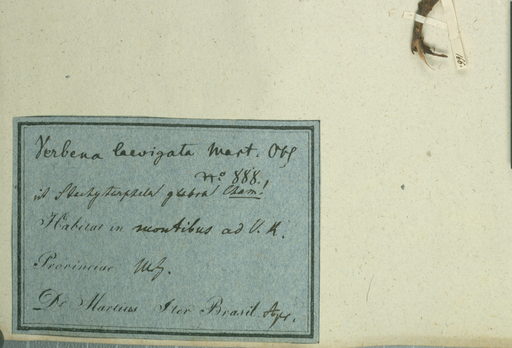 Verbena laevigata Mart. Obs
No. 888.
est Stachytarpheta glabra Cham!
Habitat in montibus ad V. R.
Provinciae M.g.
Dr Martius Iter Brasil. Apr.